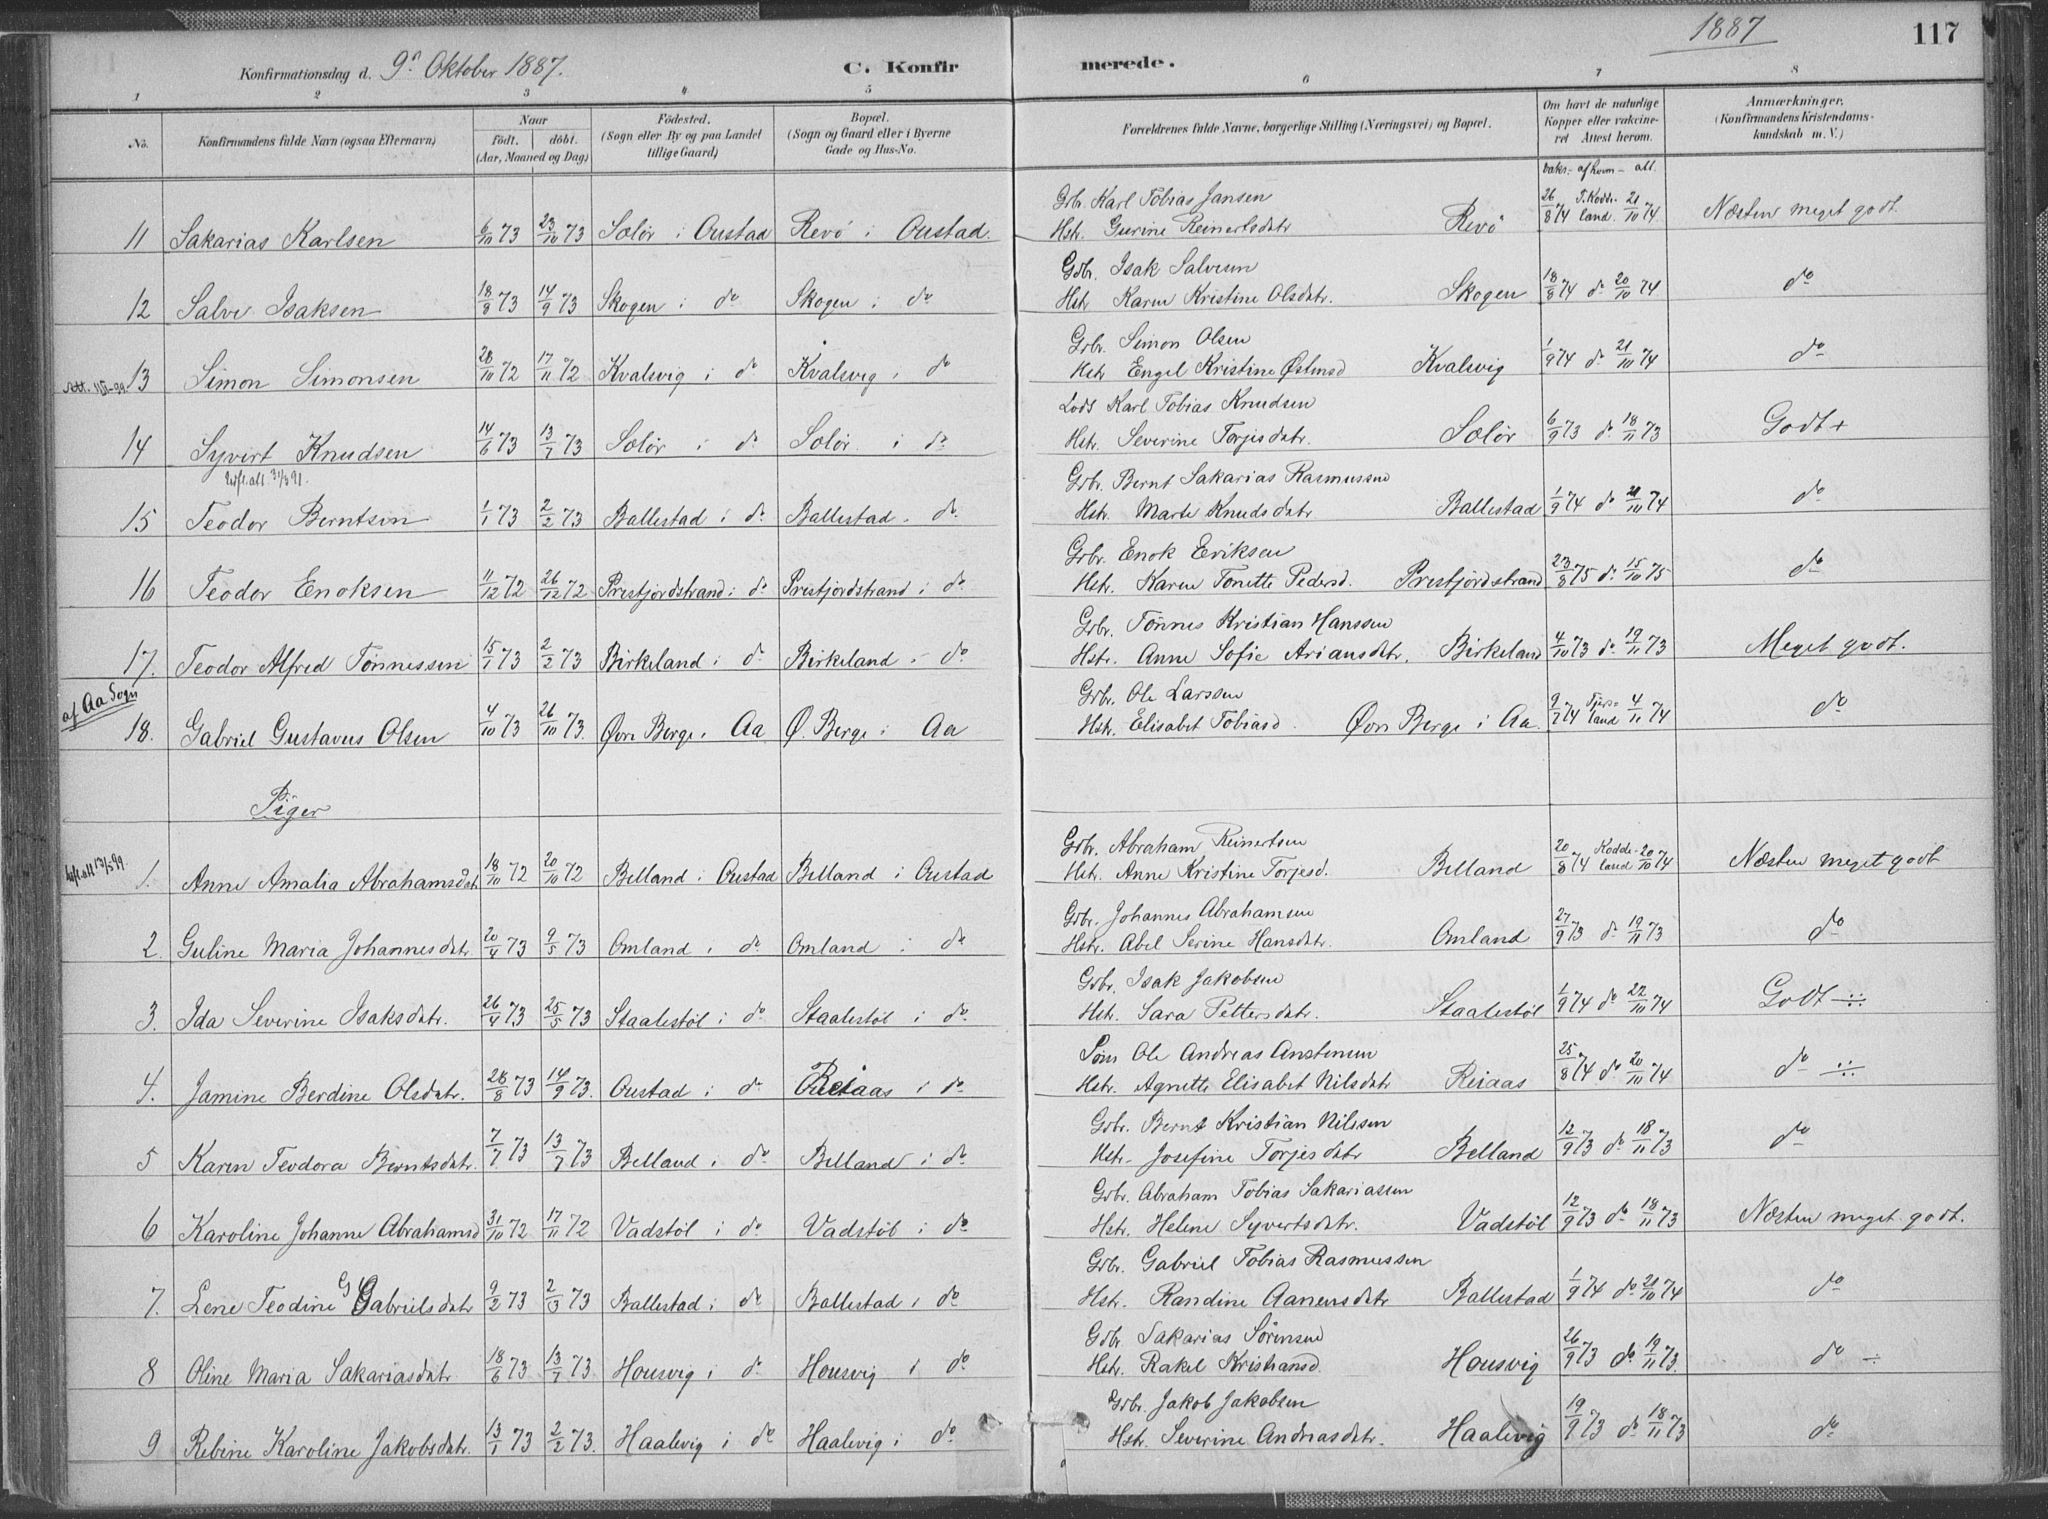 1887
117
Konfirmationsdag d. 9de Oktober 1887. C. Konfirmerede.
1 2 3 4 5 6 7 8
No. Konfirmandens fulde Navn (ogsaa Efternavn) Naar født. døbt. (Aar, Maaned og Dag) Fødested. (Sogn eller By og paa Landet tillige Gaard) Bopæl. (Sogn og Gaard eller i Byerne Gade og Hus-No. Forældrenes fulde Navne, borgerlige Stilling (Næringsvei) og Bopæl. Om havt de naturlige Kopper eller vakcineret Attest herom. Anmærkninger, (Konfirmandens Kristendomskundskab m. V.)
vaks. af hvem att.
Gbr. Karl Tobias Jansen
11 Sakarias Karlsen 6/10 73 23/10 73 Sælør i Oustad Revø i Oustad. Hstr. Gurine Reinertsdatr Revø 26/8 74 T. Koddeland. 21/10 74 Næsten meget godt.
Gdbr. Isak Salvesen
12 Salve Isaksen 18/8 73 14/9 73 Skogen i do Skogen i do Hstr Karen Kristine Olsdatr. Skogen 18/8 74 do 20/10 74 do
Gdbr. Simon Olsen
13 Simon Simonsen 28/10 72 17/11 72 Kvalsvig i do Kvalsvig i do Hstr Engel Kristine Østensd Kvalsvig 1/9 74 do 21/10 74 do
Lods Karl Tobias Knudsen
14 Syvert Knudsen 14/6 73 13/7 73 Sælør i do Sælør i do Hstr. Severine Torjesdatr. Sælør 6/9 73 do 18/11 73 Godt +
Gdbr. Bernt Sakarias Rasmussen
15 Teodor Berntsen 1/1 73 2/2 73 Ballestad i do Ballestad i do Hstr. Marte Knudsdatr Ballestad 1/9 74 do 21/10 74 do
Gdbr. Enok Eriksen
16 Teodor Enoksen 11/12 72 26/12 72 Prestfjordstrand i do Prestfjordstrand i do Hstr. Karen Tonette Pedersd. Prestfjordstrand 23/8 75 do 15/10 75 do
Gdbr. Tønnes Kristian Hanssen
17. Teodor Alfred Tønnessen 15/1 73 2/2 73 Birkeland i do Birkeland i do Hstr. Anne Sofie Ariansdatr. Birkeland 4/10 73 do 19/11 73 Meget godt.
af Aa Sogn
Gdbr. Ole Larssen
18. Gabriel Gustavus Olsen 4/10 73 26/10 73. Øvre Berge i Aa Ø. Berge i Aa Hstr. Elisabet Tobiasd. Øvre Berge i Aa. 9/7 74 4/11 74 do
Piger
Gdbr. Abraham Reinertsen
1. Anne Amalia Abrahamsdatr 18/10 72 20/10 72 Belland i Oustad Belland i Oustad Hstr. Anne Kristine Torjesd. Belland 20/8 74 Koddeland 20/10 74 Næsten meget godt
Gdbr. Johannes Abrahamsen
2. Guline Maria Johannesdatr. 20/4 73 9/5 73 Omland i do Omland i do Hstr. Abel Serine Hansdatr. Omland 27/9 73 do 19/11 73 do
Gdbr. Isak Jakobsen
3. Ida Severine Isaksdatr. 26/4 73 25/5 73 Staalestøl i do Staalestøl i do Hstr. Sara Pettersdatr. Staalestøl 1/9 74 do 22/10 74 Godt ÷
Ole Andreas Anstensen
4. Jamine Berdine Olsdatr. 28/8 73 14/9 73. Oustad i do Reiaas i do Hstr. Agnette Elisabet Nilsdatr Reiaas 25/8 74 do 20/10 74 do ÷
Gdbr. Bernt Kristian Nilssen
5 Karen Teodora Berntsdatr. 7/7 73 13/7 73 Belland i do Belland i do Hstr. Josefine Torjesdatr Belland 12/9 73 do 18/11 73 do
Gdbr. Abraham Tobias Sakariassen
6 Karoline Johanne Abrahamsd 31/10 72 17/11 72 Vadstøl i do Vadstøl i do Hstr. Helene Syvertsdatr. Vadstøl 12/9 73 do 18/11 73 Næsten meget godt.
Gdbr. Gabriel Tobias Rasmussen
7. Lene Teodine Gabrielsdatr 9/2 73 2/3 73 Ballestad i do Ballestad i do Hstr. Randine Aanensdatr Ballestad 1/9 74 do 21/10 74 do
Gdbr Sakarias Sørensen
8 Oline Maria Sakariasdatr 18/6 73 13/7 73 Housvig i do Housvig i do Hstr. Rakel Kristiansd. Housvig 26/9 73 do 19/11 73. do ÷
Gdbr. Jakob Jakobsen
9 Rebine Karoline Jakobsdatr. 13/1 73 2/2 73. Haalevig i do Haalevig i do Hstr. Severine Andreasdatr. Haalevig 19/9 73 do 18/11 73 do